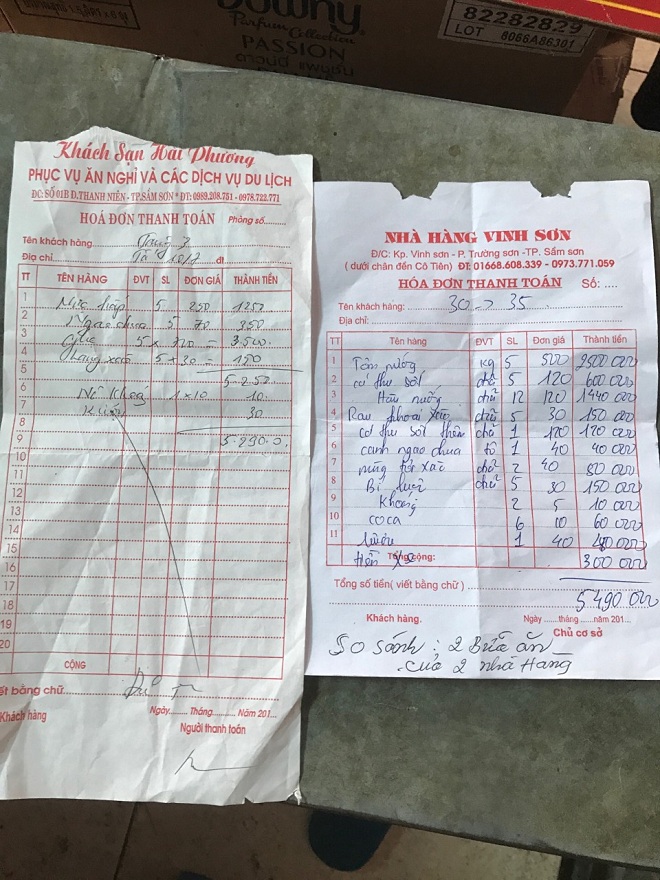 Downy
Parfum Collection
PASSION
ดาวน์นี่ แพชชั่น
82282829
LOT 8066A86301
Khách Sạn Hải Phương
PHỤC VỤ ĂN NGHỈ VÀ CÁC DỊCH VỤ DU LỊCH
ĐC: SỐ 01B Đ.THANH NIÊN - TP.SẦM SƠN * ĐT: 0989.208.751 - 0978.722.771
HOÁ ĐƠN THANH TOÁN Phòng số.......
Tên khách hàng
Địa chỉ đt
TT TÊN HÀNG ĐVT SL ĐƠN GIÁ THÀNH TIỀN
1 Mực hấp 5 250 1250
2 Ngao chua 5 70 350
3 Ghẹ 5 x 720 = 3.500
4 5 x 30 = 150
5 5.250
6 1 x 10 10
7 30
8
9 5.290.0
10
11
12
13
14
15
16
17
18
19
20
CỘNG
ết bằng chữ
Ngày........ Tháng........ Năm 201...
Khách hàng Người thanh toán
NHÀ HÀNG VINH SƠN
Đ/C: Kp. Vinh sơn - P. Trường sơn -TP. Sầm sơn
( dưới chân đền Cô Tiên) ĐT: 01668.608.339 - 0973.771.059
HÓA ĐƠN THANH TOÁN Số: ....
Tên khách hàng: 30 -> 35
Địa chỉ:
TT Tên hàng ĐVT SL Đơn giá Thành tiền
1 Tôm nướng kg 5 500 2500 000
2 cá thu sốt chỗ 5 120 600 000
3 Hàu nướng chỗ 12 120 1440 000
4 Rau khoai xào chỗ 5 30 150 000
5 cá thu sốt thêm chỗ 1 120 120 000
6 canh ngao chua tô 1 40 40 000
7 xào chỗ 2 40 80 000
8 Bí luộc chỗ 5 30 150 000
9 Khoáng 2 5 10 000
10 coca 6 10 60 000
11 1 40 40 000
Tổng cộng: 300 000
Tổng số tiền( viết bằng chữ ) 5 490 000
Khách hàng. Ngày ......tháng......năm 201...
Chủ cơ sở
So sánh : 2 Bữa ăn
của 2 nhà Hàng